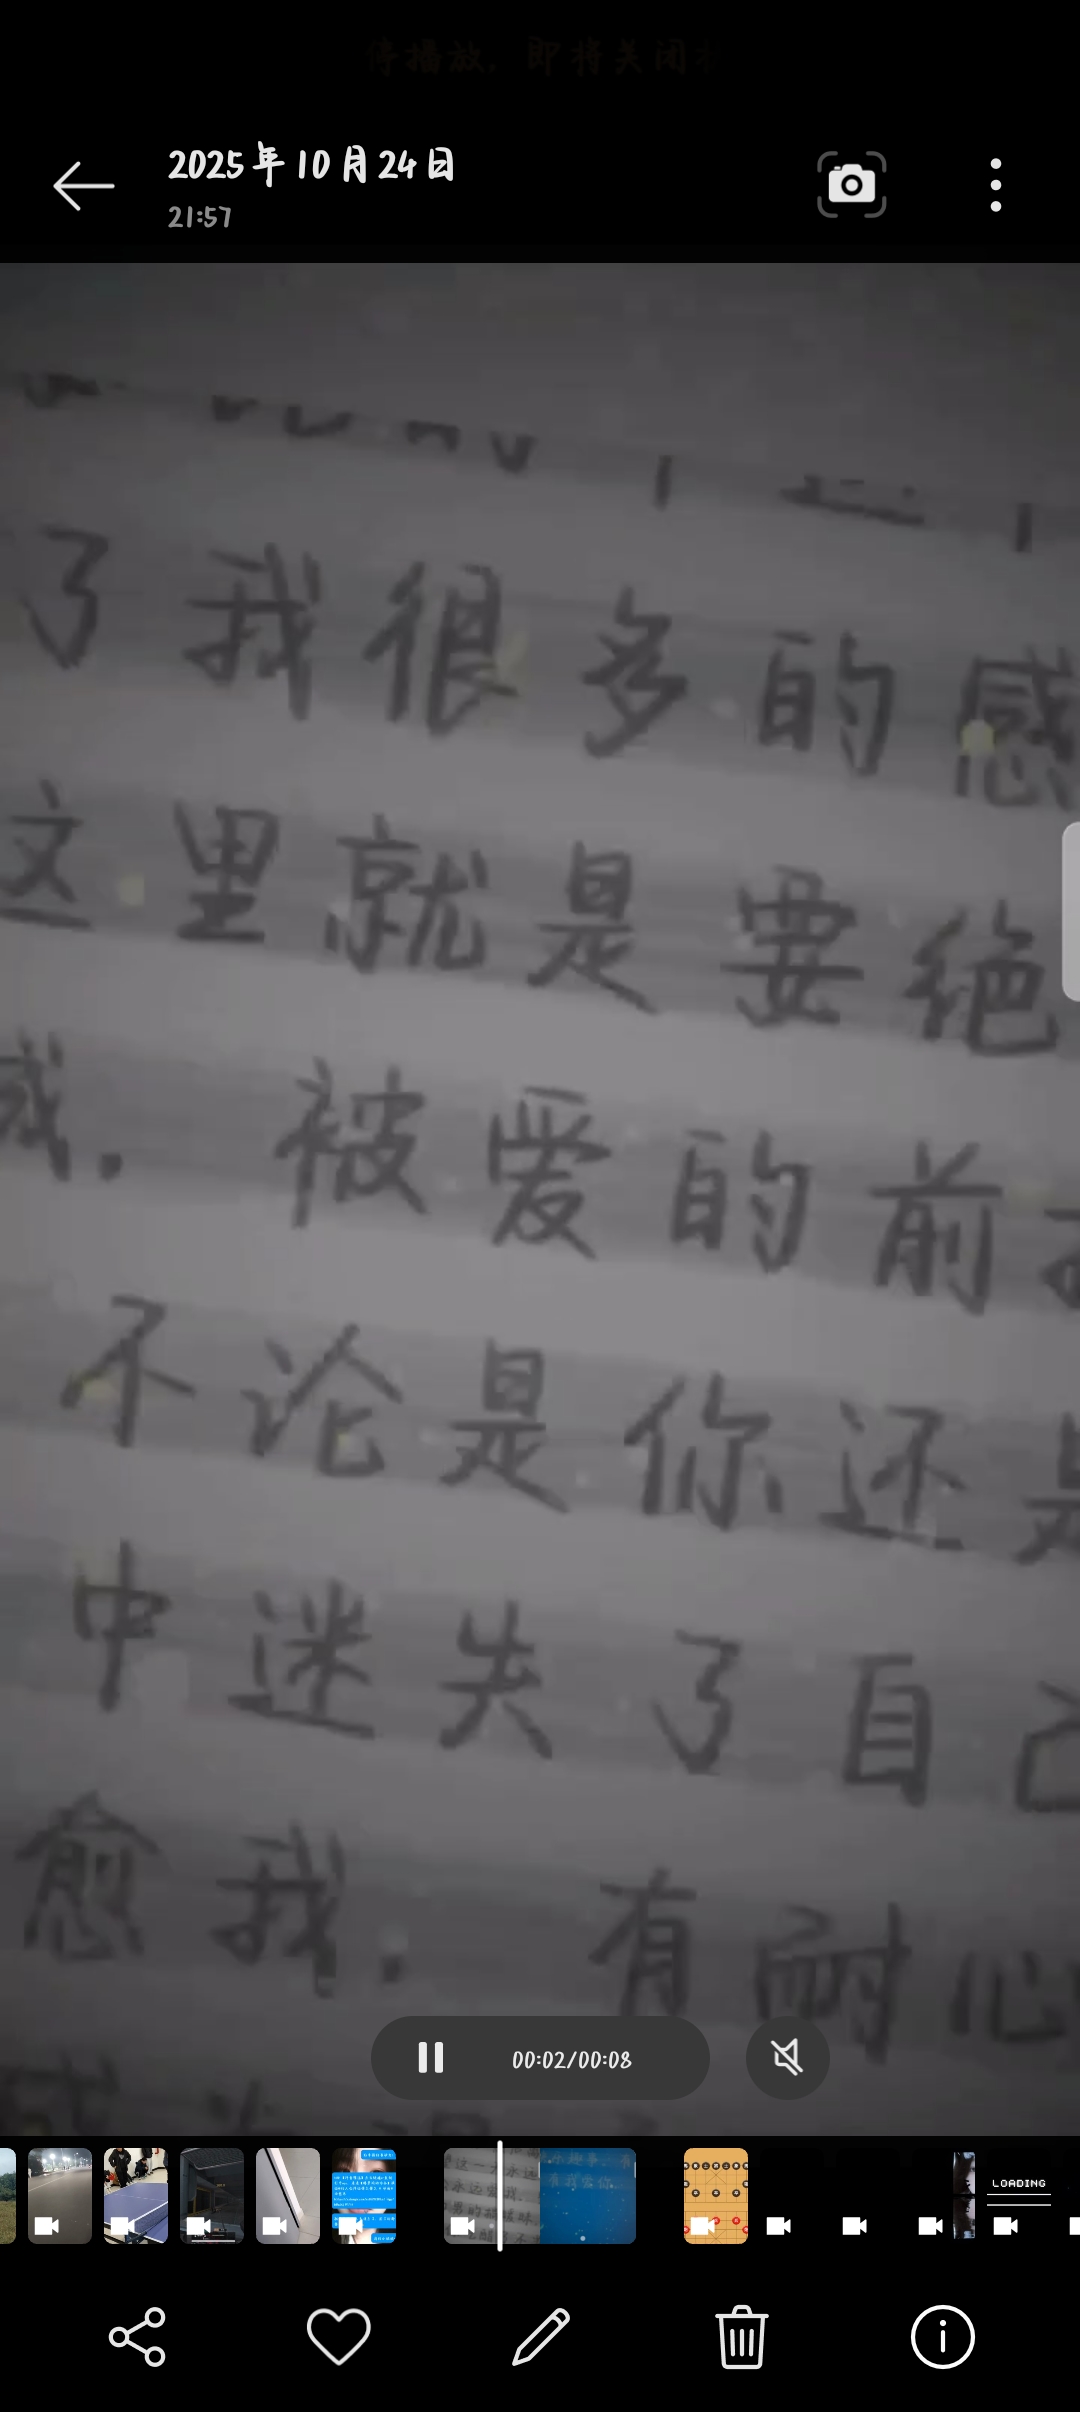 停播放，即将关闭
2025年10月24日
21:57
了我很多的感
这里就是要绝
感．被爱的前
不论是你还是
中迷失了自己
愈我．有耐心
00:02/00:08
LOADING